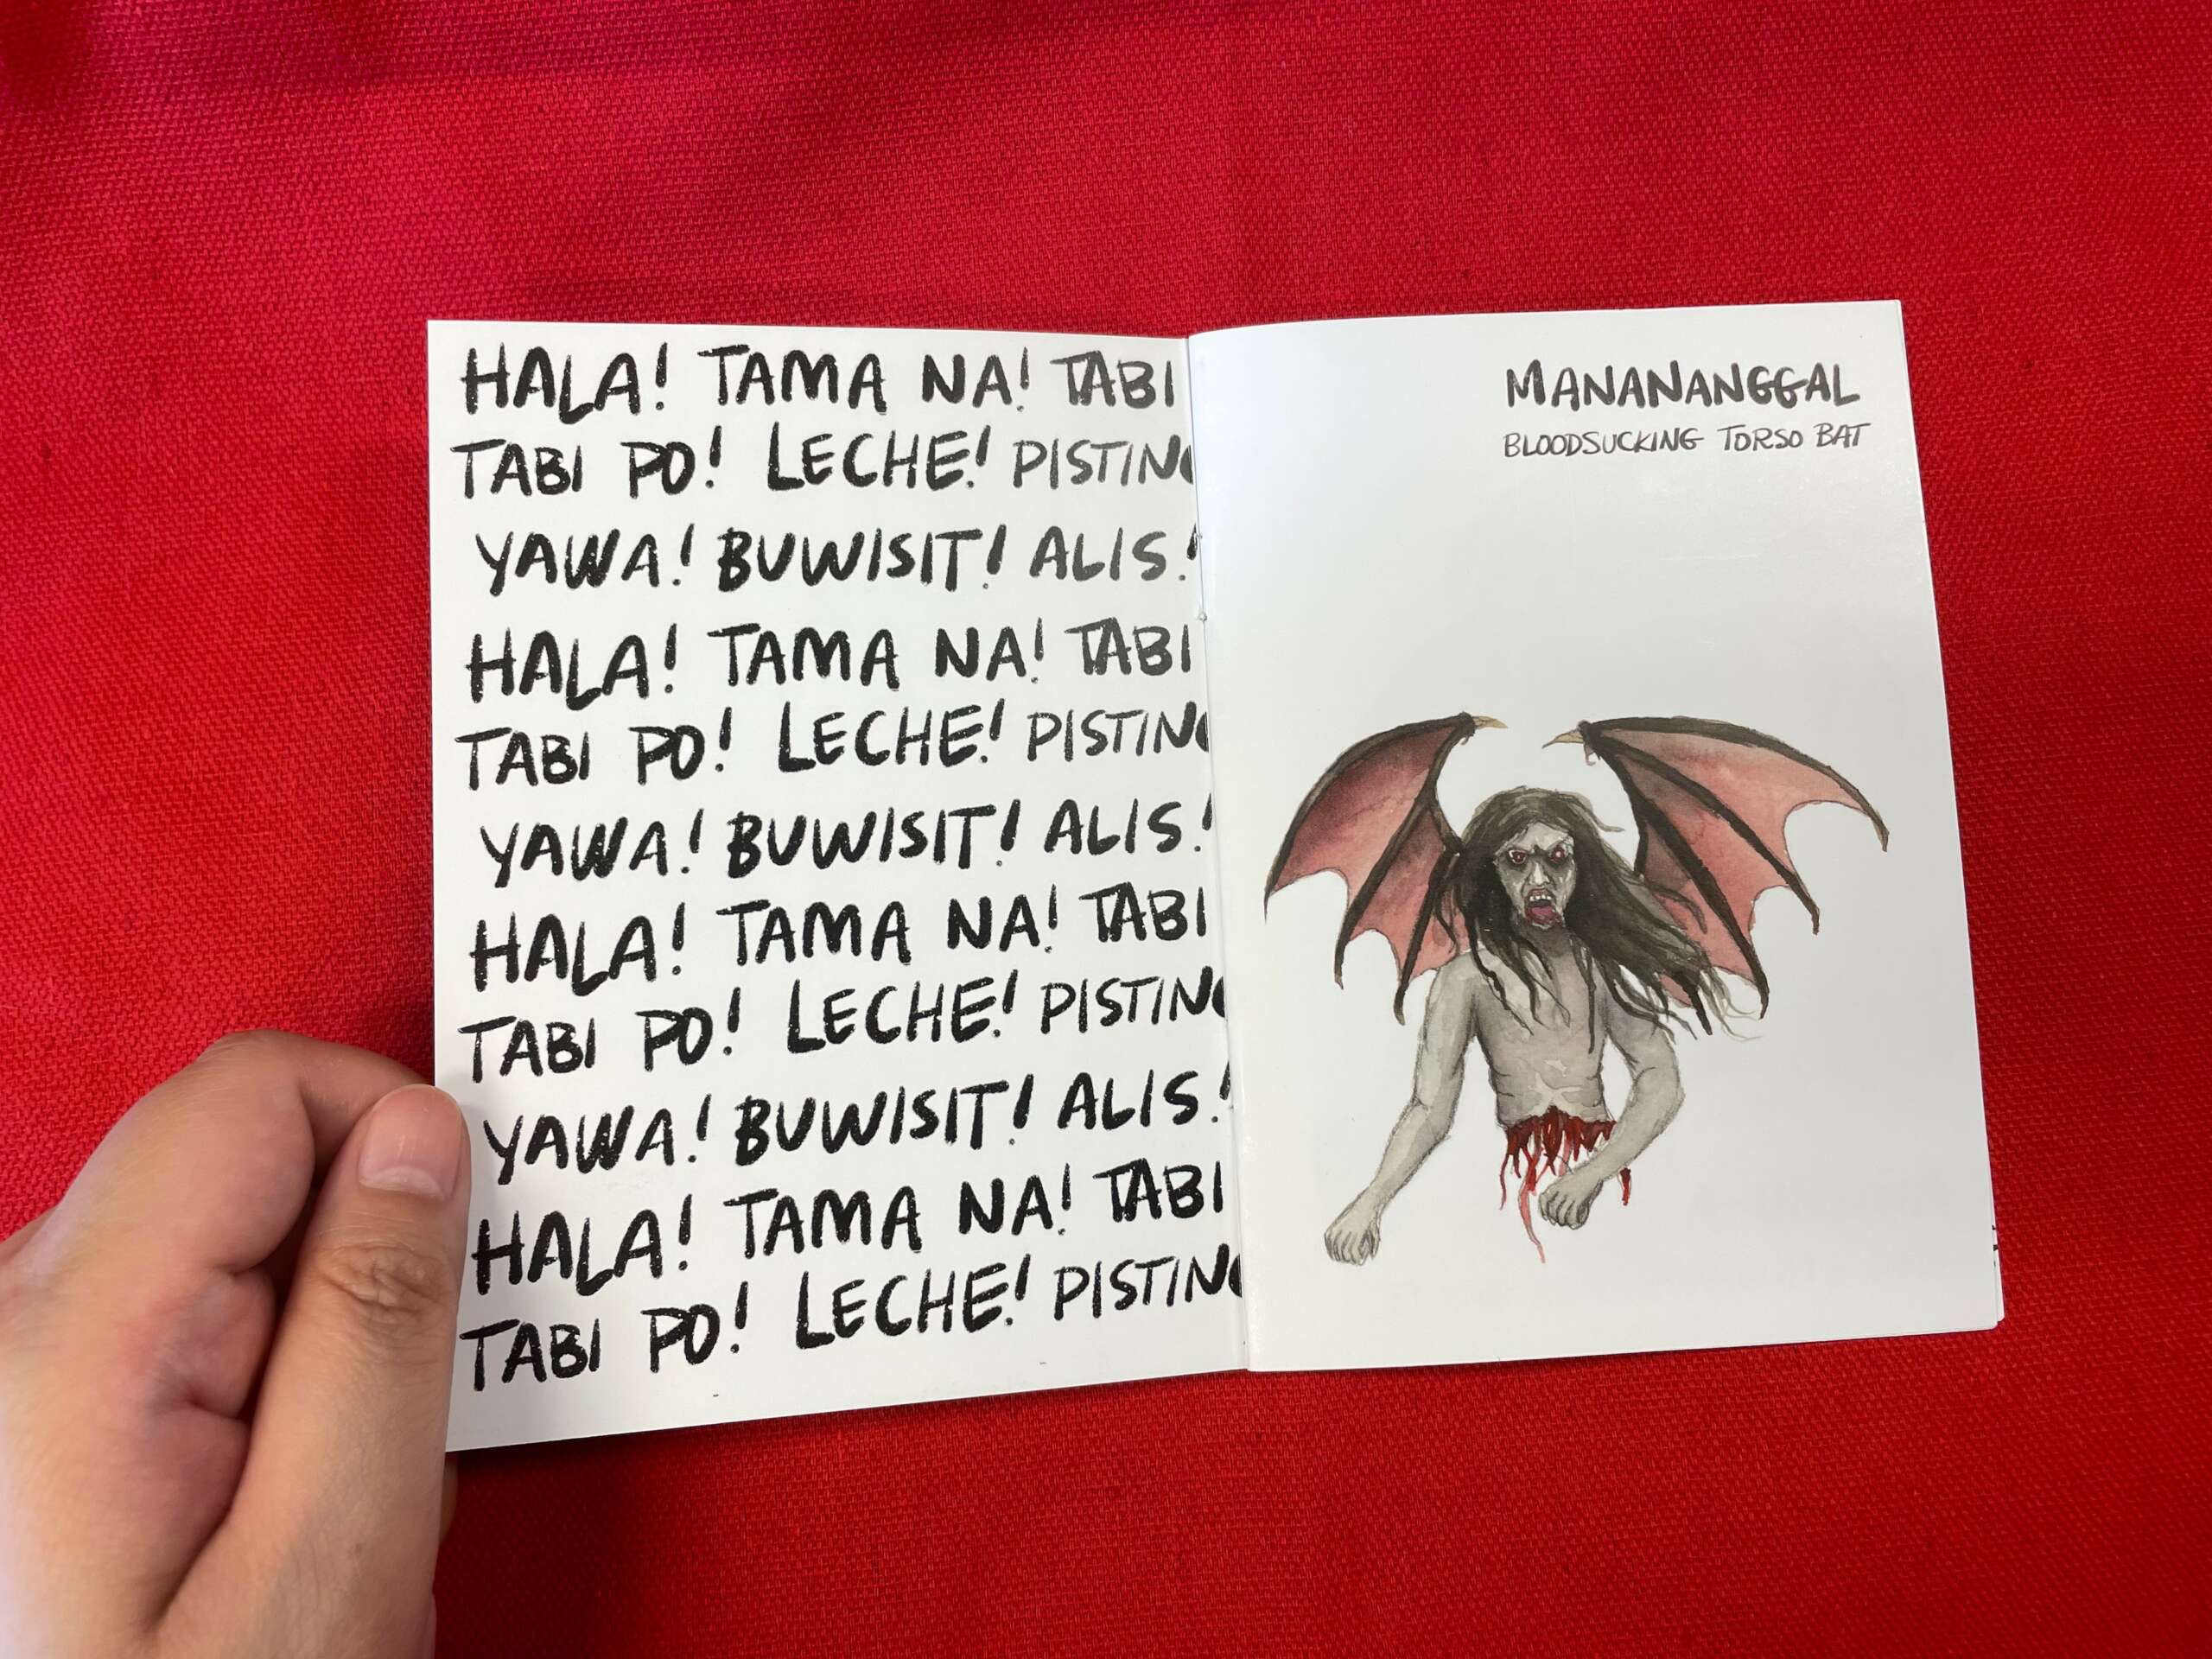 HALA! TAMA NA! TABI
TABI PO! LECHE! PISTING
YAWA! BUWISIT! ALIS!
HALA! TAMA NA! TABI
TABI PO! LECHE! PISTING
YAWA! BUWISIT! ALIS!
HALA! TAMA NA! TABI
TABI PO! LECHE! PISTING
YAWA! BUWISIT! ALIS!
HALA! TAMA NA! TABI
TABI PO! LECHE! PISTING
MANANANGGAL
BLOODSUCKING TORSO BAT